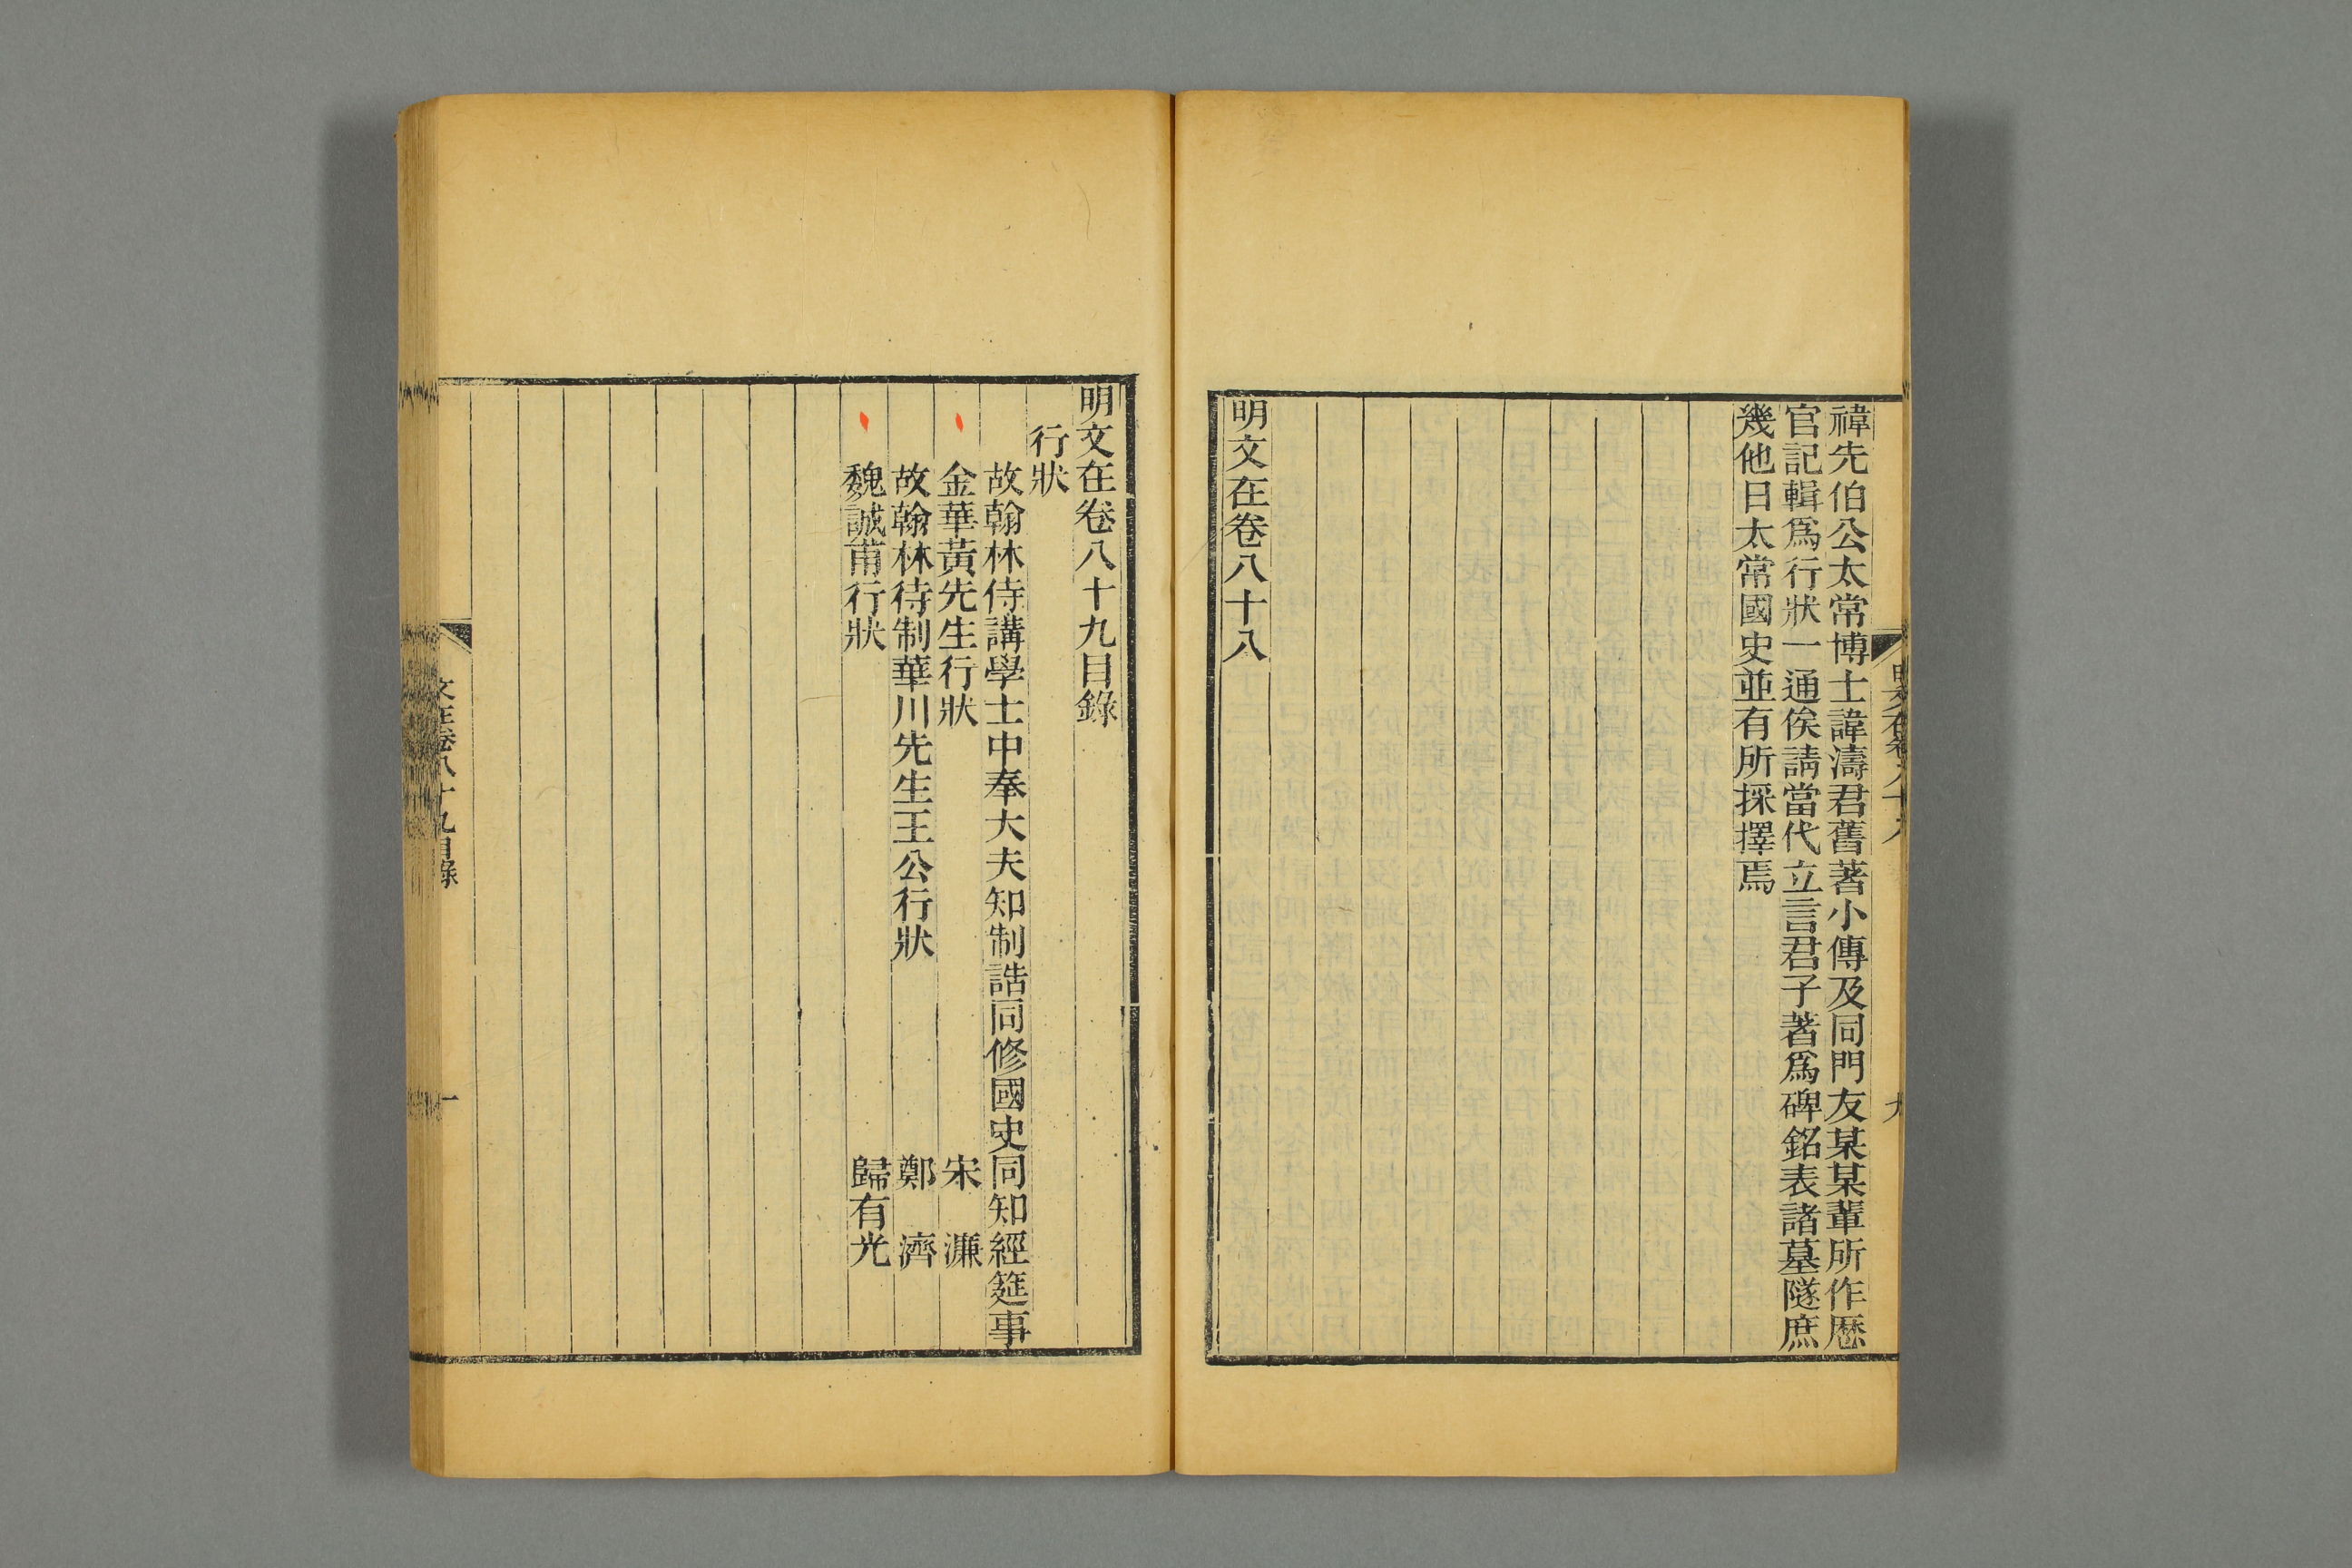 禕先伯公太常博士諱濤君舊著小傳及同門友某某輩所作歷
官記輯爲行狀一通俟請當代立言君子著爲碑銘表諸墓隧庶
幾他日太常國史並有所採擇焉
明文在卷八十八
明文在卷八十八
九
明文在卷八十九目錄
行狀
故翰林侍講學士中奉大夫知制誥同修國史同知經筵事
金華黃先生行狀 宋濂
故翰林待制華川先生王公行狀 鄭濟
魏誠甫行狀 歸有光
文在卷八十九目錄
一